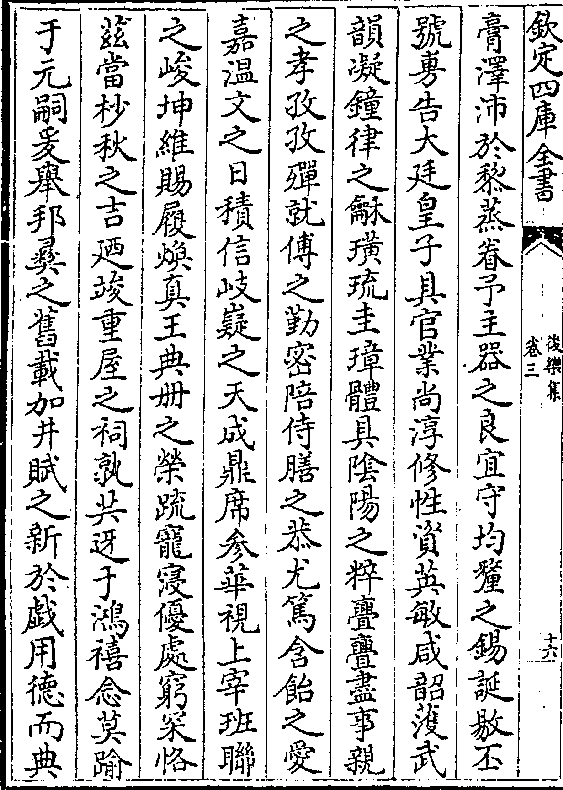 欽定四庫全書
後樂集
卷三
十六
膏澤沛於黎蒸眷予主器之良宜守均釐之錫誕敭丕
號旉告大廷皇子具官業尚淳修性資英敏咸韶濩武
韻凝鐘律之龢璜琉圭璋體具隂陽之粹亹亹盡事親
之孝孜孜殫就傅之勤密陪侍膳之恭尤篤含飴之愛
嘉温文之日積信岐嶷之天成鼎席參華視上宰班聯
之峻坤維賜履煥真王典册之榮䟽寵寖優處窮冞恪
兹當杪秋之吉廼竣重屋之祠孰共迓于鴻禧念莫踰
于元嗣爰舉邦彛之舊載加井賦之新於戯用德而典